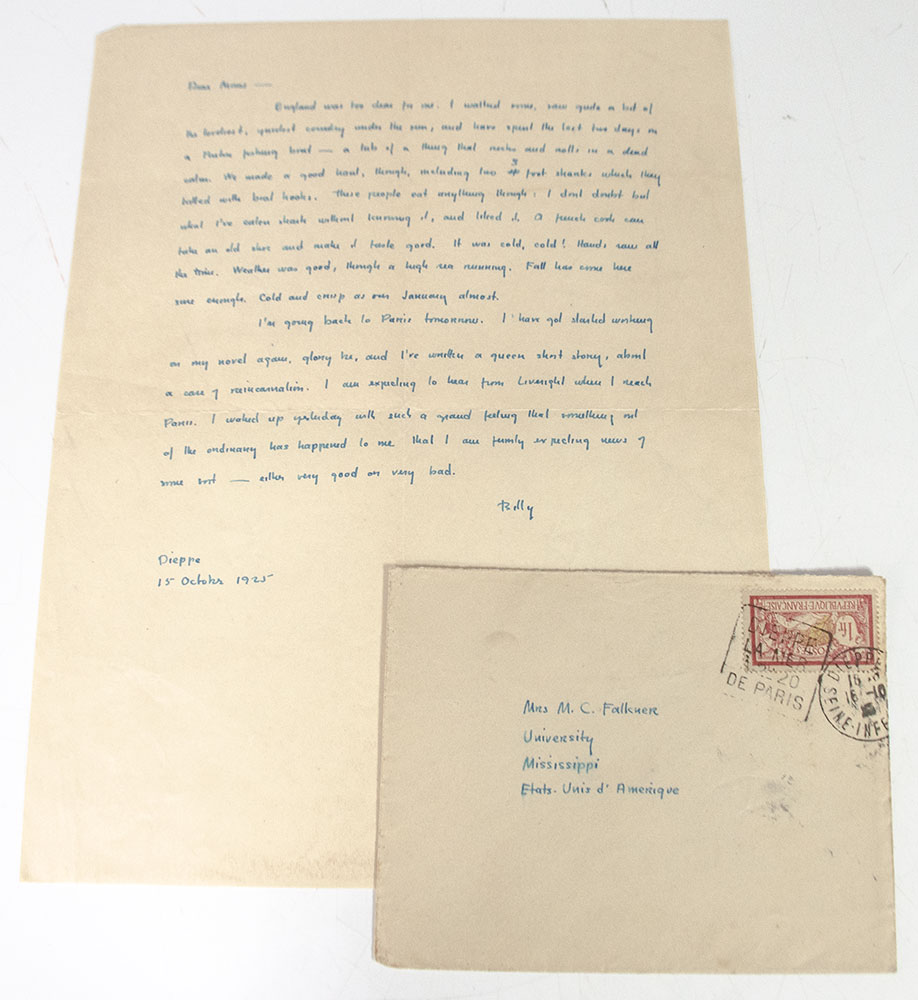 Dear Moms —
England was too dear for me. I walked some, saw quite a bit of
the loveliest, quietest country under the sun, and have spent the last two days on
a fishing boat — a tub of a thing that rocks and rolls in a dead
calm. We made a good haul, though, including two 3 foot sharks which they
killed with boat hooks. These people eat anything though: I dont doubt but
what I've eaten shark without knowing it, and liked it. A french cook can
take an old shoe and make it taste good. It was cold, cold! Hands raw all
the time. Weather was good, though a high sea running. Fall has come here
sure enough. Cold and crisp as our January almost.
I'm going back to Paris tomorrow. I have got started working
on my novel again, glory be, and I've written a queer short story, about
a case of reincarnation. I am expecting to hear from Liveright when I reach
Paris. I waked up yesterday with such a grand feeling that something out
of the ordinary has happened to me that I am firmly expecting news of
some sort — either very good or very bad.
Billy
Dieppe
15 October 1925
REPUBLIQUE·FRANÇAISE
1Fr
POSTES
DIEPPE
LA MER
20
DE PARIS
DIEPPE
16
SEINE-INFE
Mrs M. C. Falkner
University
Mississippi
Etats-Unis d'Amerique